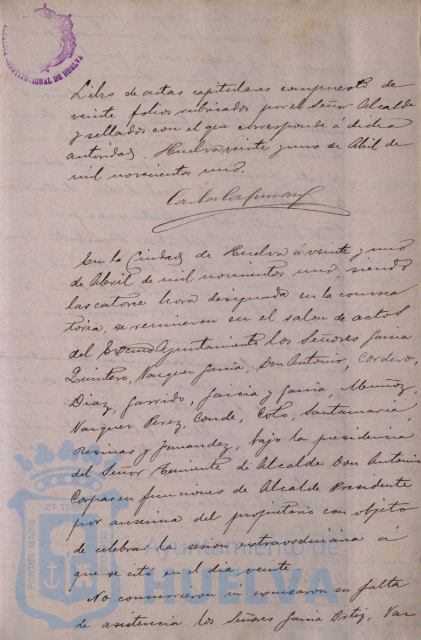 CONSTITUCIONAL DE HUELVA
Libro de actas capitulares compuesto de
veinte folios rubricados por el Señor Alcalde
y sellados con el que corresponde á dicha
autoridad. Huelva veinte y uno de Abril de
mil novecientos uno.
En la Ciudad de Huelva á veinte y uno
de Abril de mil novecientos uno, siendo
las catorce hora designada en la convoca
toria, se reunieron en el salon de actos
del Excmo Ayuntamiento los Señores Garcia
Quintero, Vazquez Garcia, Don Antonio, Cordero,
Diaz, Garrido, Garcia y Garcia, Muñoz,
Vazquez Perez, Conde, Coto, Santamaria,
y Fernandez, bajo la presidencia
del Señor Teniente de Alcalde Don Antonio
Corpas en funciones de Alcalde Presidente
por ausencia del propietario con objeto
de celebrar la sesion extraordinaria á
que se citó en el dia veinte
No concurrieron ni excusaron su falta
de asistencia los Señores Garcia Ortiz, Vaz
PORTUS MARIS ET TERRÆ CUSTODIA
Ayuntamiento de
HUELVA